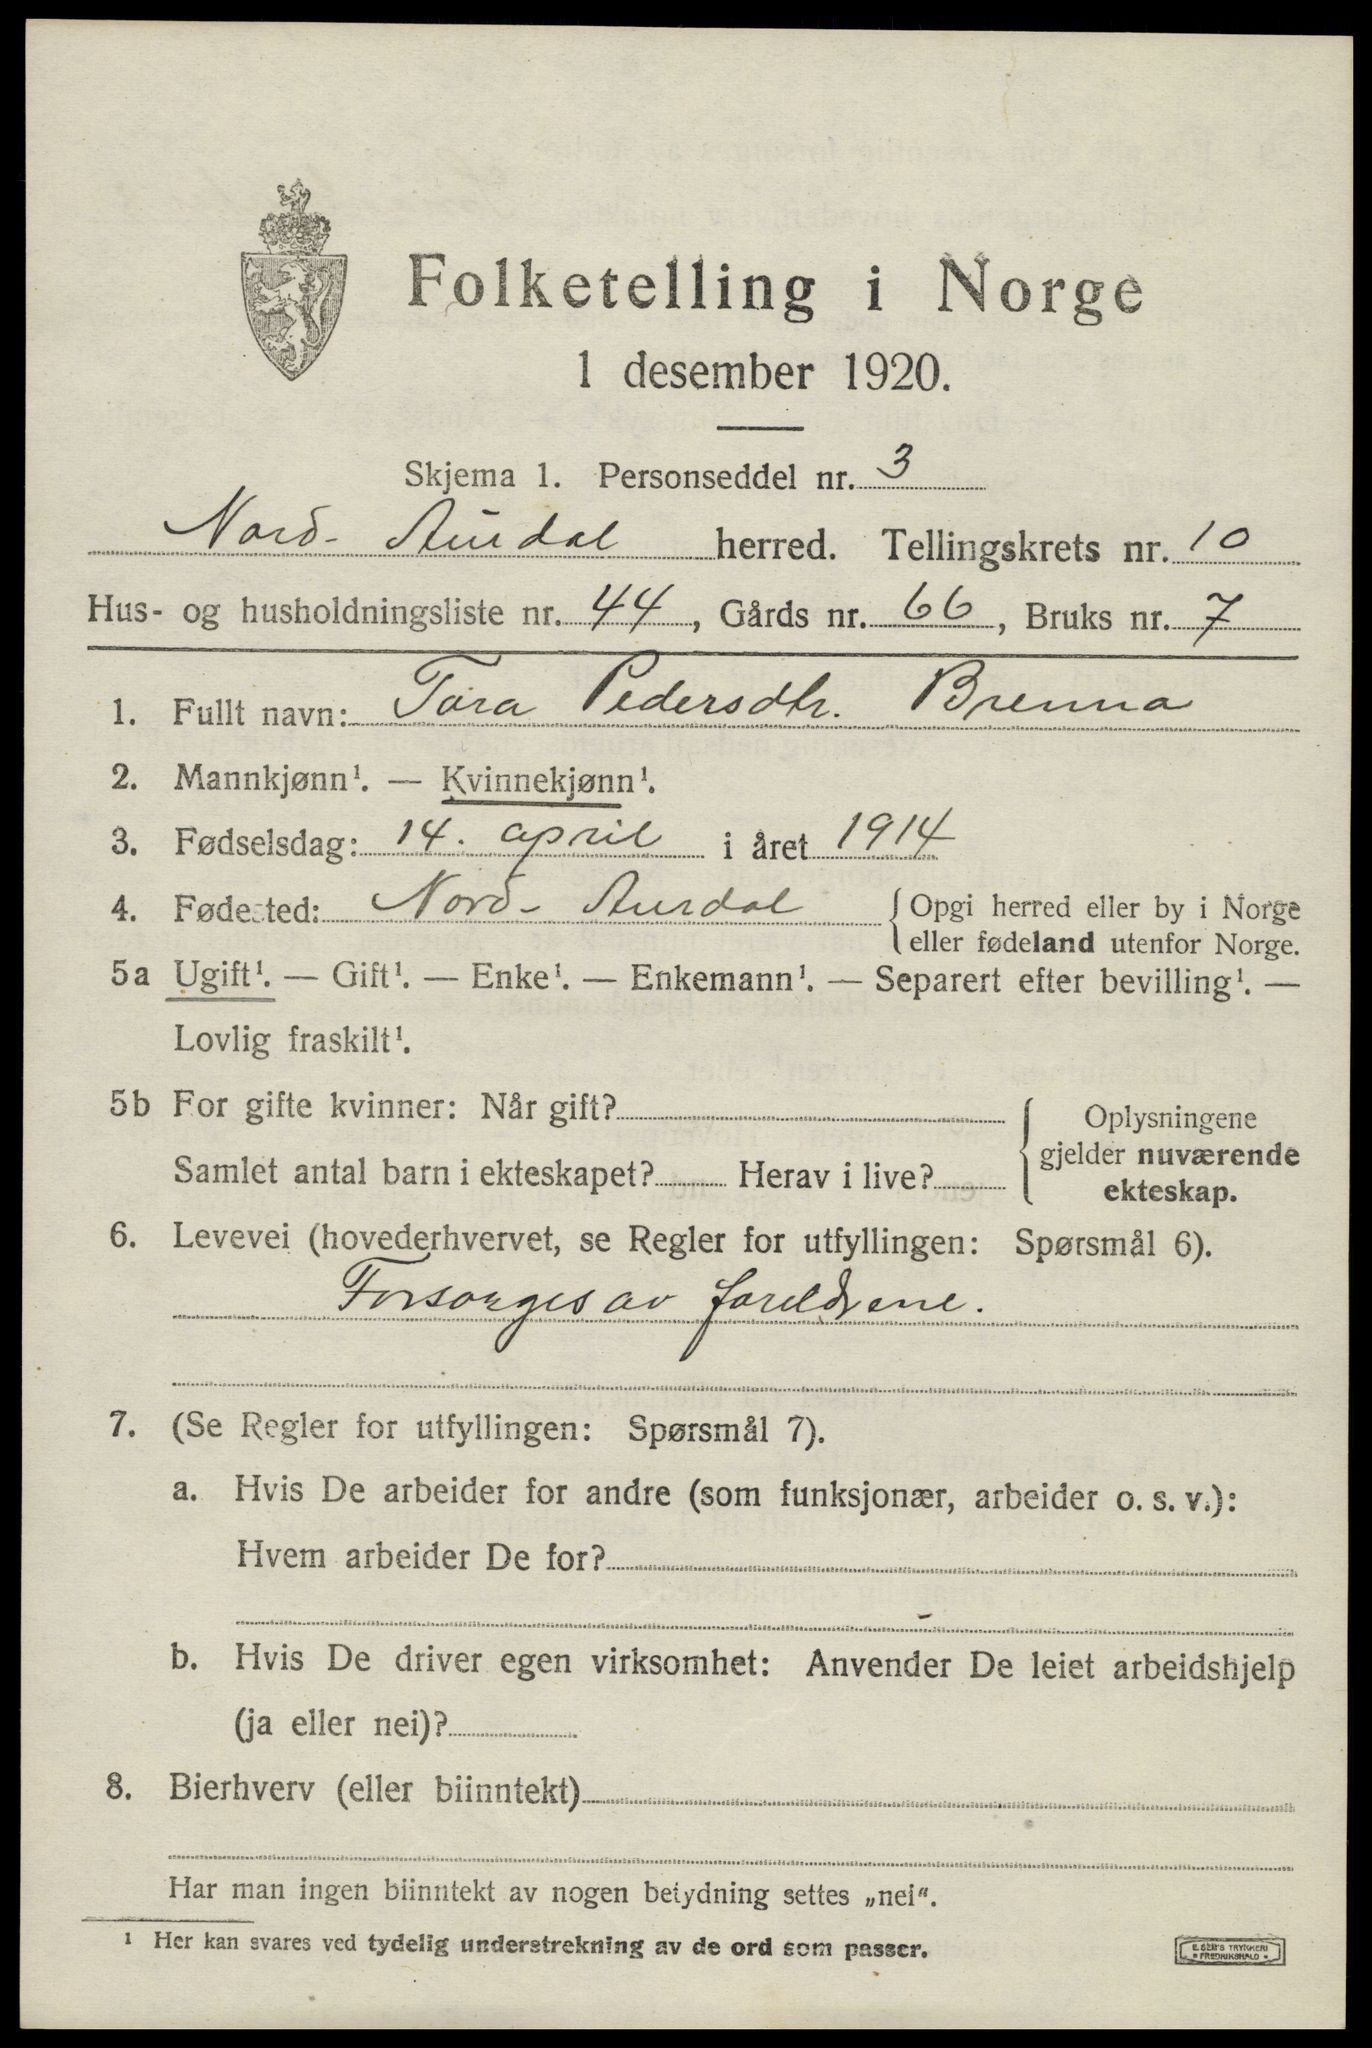 Folketelling i Norge
1 desember 1920.
Skjema 1. Personseddel nr. 3
Nord-Aurdal herred. Tellingskrets nr. 10
Hus- og husholdningsliste nr. 44, Gårds nr. 66, Bruks nr. 7
1. Fullt navn: Tora Pedersdtr. Brenna
2. Mannkjønn¹. — Kvinnekjønn¹.
3. Fødselsdag: 14. april i året 1914
4. Fødested: Nord-Aurdal {Opgi herred eller by i Norge
eller fødeland utenfor Norge.
5a Ugift¹. — Gift¹. — Enke¹. — Enkemann¹. — Separert efter bevilling¹. —
Lovlig fraskilt¹.
5b For gifte kvinner: Når gift? Oplysningene
gjelder nuværende
Samlet antal barn i ekteskapet? Herav i live? ekteskap.
6. Levevei (hovederhvervet, se Regler for utfyllingen: Spørsmål 6).
Forsørges av foreldrene.
7. (Se Regler for utfyllingen: Spørsmål 7).
a. Hvis De arbeider for andre (som funksjonær, arbeider o. s. v.):
Hvem arbeider De for?
b. Hvis De driver egen virksomhet: Anvender De leiet arbeidshjelp
(ja eller nei)?
8. Bierhverv (eller biinntekt)
Har man ingen biinntekt av nogen betydning settes „nei“.
¹ Her kan svares ved tydelig understrekning av de ord som passer.
E. SEM'S TRYKKERI
• FREDRIKSHALD •